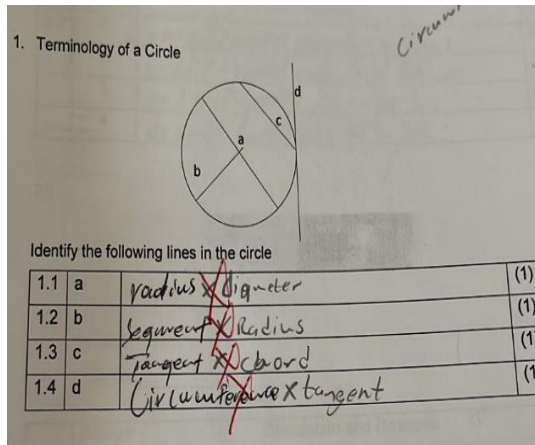 Circum
1. Terminology of a Circle
d
c
a
b
Identify the following lines in the circle
1.1 a radius X diameter (1)
1.2 b Segment X Radius (1)
1.3 c Tangent X chord (1
1.4 d Circumference X tangent (1